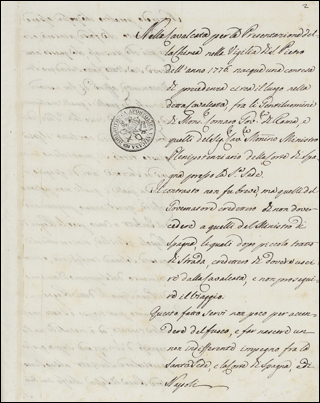 2
Nella Cavalcata per la Presentazione del
la Chinea nella Vigilia di S. Pietro
dell'anno 1776. nacque una contesa
di precedenza circa il luogo nella
detta Cavalcata, fra li Gentiluomini
di Mons.r Cornaro Gov.re di Roma, e
quelli del Sig.r Cav.re Monino Ministro
Plenipotenziario della Corte di Spa
gna presso la S.ta Sede.
Il contrasto non fu breve, ma quelli del
Governatore credettero di non dover
cedere a quelli del Ministro di
Spagna, le quali dopo piccolo tratto
di Strada, credettero di dover
uscire dalla Cavalcata, e non prosegui
re il viaggio.
Questo fatto servì non poco per accen
dere del fuoco, e far nascere un
non indifferente impegno fra la
Santa Sede, e la Corte di Spagna, e di
Napoli